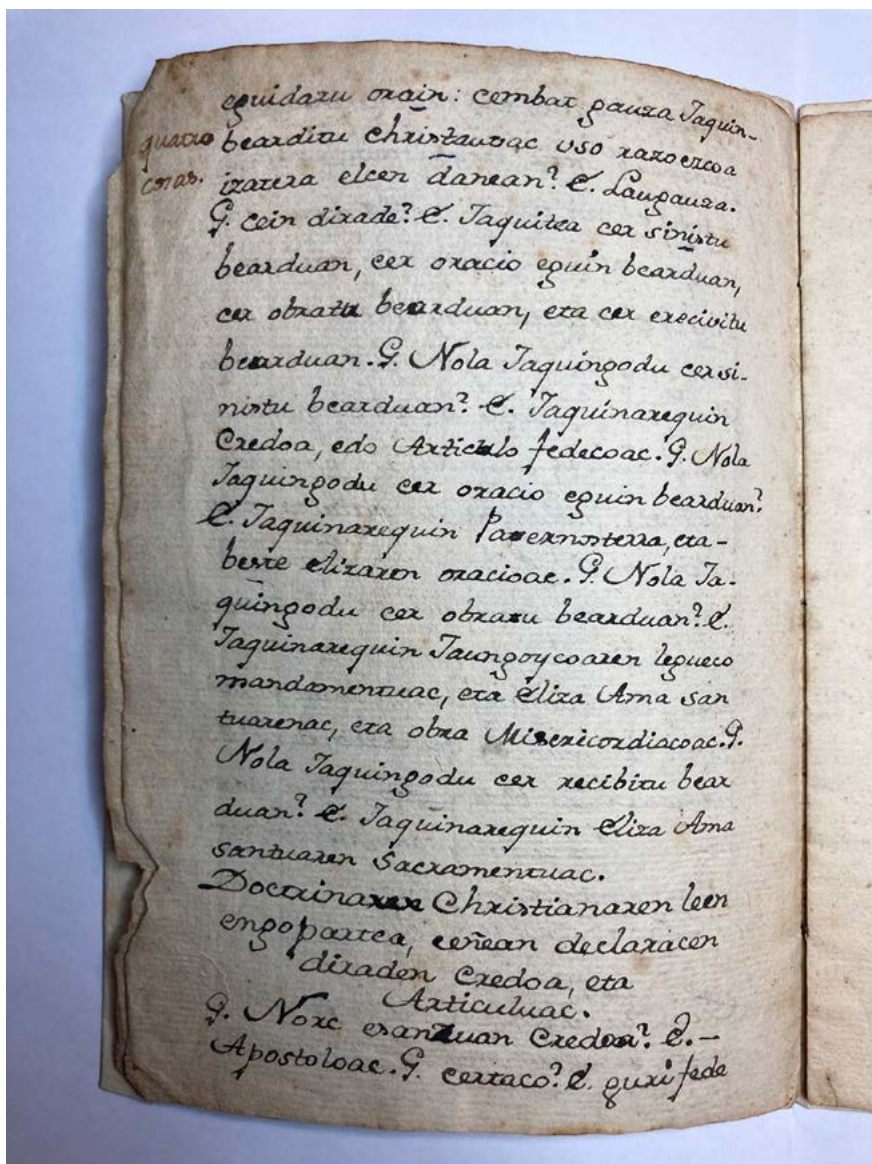 eguidazu orain: cembat gauza Jaquin-
quatro
cosas.
bearditu christauvac uso razoezcoa
izatera elcen danean? E. Laugauza.
G. cein dirade? E. Jaquitea cer sinistu
bearduan, cer oracio eguin bearduan,
cer obratu bearduan, eta cer erecivitu
bearduan. G. Nola Jaquingodu cer si-
nistu bearduan? E. Jaquinarequin
Credoa, edo Articulo fedecoac. G. Nola
Jaquingodu cer oracio eguin bearduan?
E. Jaquinarequin Paternosterra, eta-
beste elizaren oracioac. G. Nola Ja-
quingodu cer obratu bearduan? E.
Jaquinarequin Jaungoycoaren legueco
mandamentuac, eta Eliza Ama san
tuarenac, eta obra Misericordiacoac. G.
Nola Jaquingodu cer recibitu bear
duan? E. Jaquinarequin Eliza Ama
santuaren Sacramentuac.
Doctrinaren Christianaren leen
engopartea, ceñean declaracen
diraden Credoa, eta
Articuluac.
G. Norc esanzuan Credoa? E. -
Apostoloac. G. certaco? E. guri fede